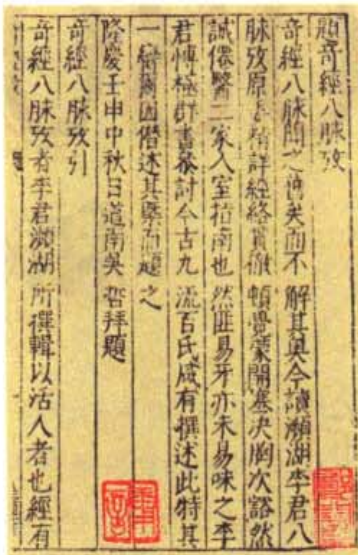 題奇經八脉攷
奇經八脉聞之舊矣而不解其奥今讀瀕湖李君八
脉攷原委精詳經絡貫徹頓覺蒙開塞决胸次豁然
誠僊醫二家入室指南也然匪易牙亦未易味之李
君博極群書參討今古九流百氏咸有撰述此特其
一臠爾因僭述其槩而題之
隆慶壬申中秋日道南吳哲拜題
奇經八脉攷引
奇經八脉攷者李君瀕湖所撰輯以活人者也經有